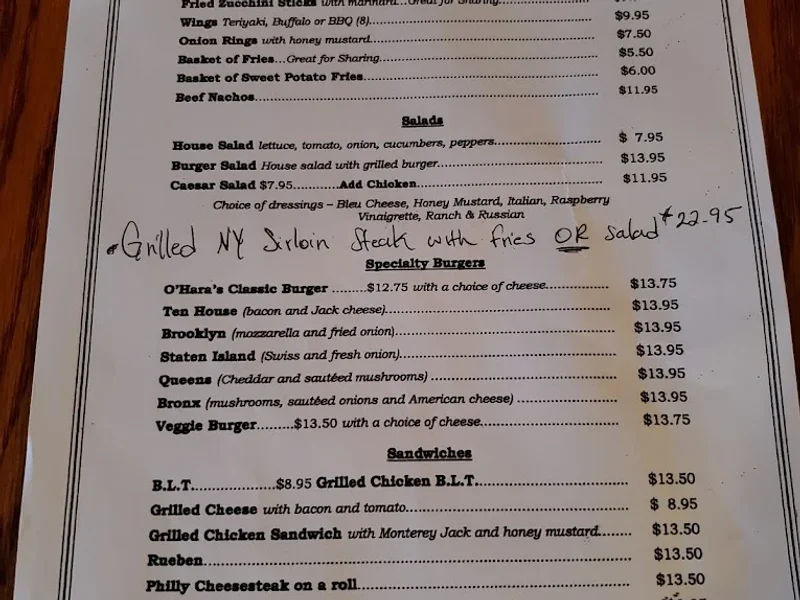 Fried Zucchini Sticks with marinara...Great for Sharing
Wings Teriyaki, Buffalo or BBQ (8)........ $9.95
Onion Rings with honey mustard........ $7.50
Basket of Fries...Great for Sharing........ $5.50
Basket of Sweet Potato Fries........ $6.00
Beef Nachos........ $11.95
Salads
House Salad lettuce, tomato, onion, cucumbers, peppers........ $ 7.95
Burger Salad House salad with grilled burger........ $13.95
Caesar Salad $7.95...........Add Chicken........ $11.95
Choice of dressings – Bleu Cheese, Honey Mustard, Italian, Raspberry
Vinaigrette, Ranch & Russian
Grilled NY Sirloin Steak with fries OR salad $22-95
Specialty Burgers
O'Hara's Classic Burger ........$12.75 with a choice of cheese........ $13.75
Ten House (bacon and Jack cheese)........ $13.95
Brooklyn (mozzarella and fried onion)........ $13.95
Staten Island (Swiss and fresh onion)........ $13.95
Queens (Cheddar and sautéed mushrooms) ........ $13.95
Bronx (mushrooms, sautéed onions and American cheese) ........ $13.95
Veggie Burger.........$13.50 with a choice of cheese........ $13.75
Sandwiches
B.L.T.....................$8.95 Grilled Chicken B.L.T......... $13.50
Grilled Cheese with bacon and tomato........ $ 8.95
Grilled Chicken Sandwich with Monterey Jack and honey mustard........ $13.50
Rueben........ $13.50
Philly Cheesesteak on a roll........ $13.50